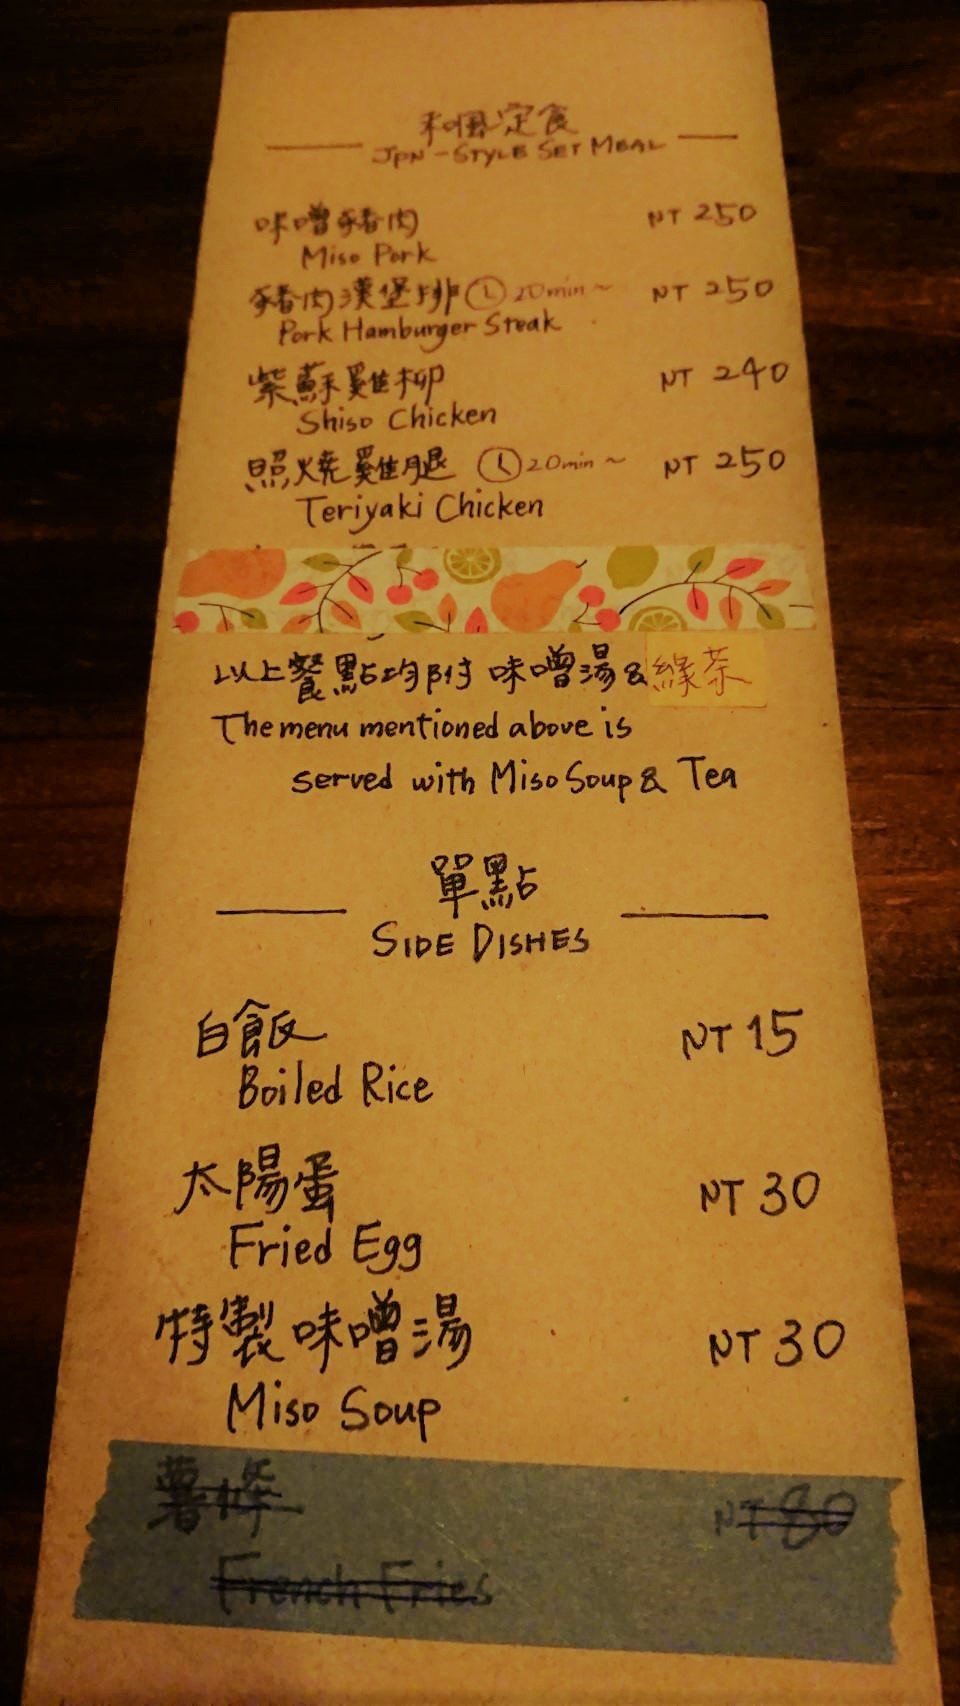 和風定食
JPN-STYLE SET MEAL
味噌豬肉 NT 250
Miso Pork
豬肉漢堡排 20min~ NT 250
Pork Hamburger Steak
紫蘇雞柳 NT 240
Shiso Chicken
照燒雞腿 20min~ NT 250
Teriyaki Chicken
以上餐點均附 味噌湯&綠茶
The menu mentioned above is
served with Miso Soup & Tea
單點
SIDE DISHES
白飯 NT 15
Boiled Rice
太陽蛋 NT 30
Fried Egg
特製味噌湯 NT 30
Miso Soup
薯條 NT 80
French Fries